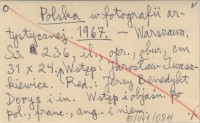 Polska w fotografii ar-
tystycznej. 1967. – Warszawa.
S3. 236, il., opr., obw., cm
31 x 24. Wstęp: Jarosław Iwasz-
kiewicz. Red.: Jerzy Benedykt
Dorys i in. Wstęp i objaśn. po
pol., franc., ang. i niem.